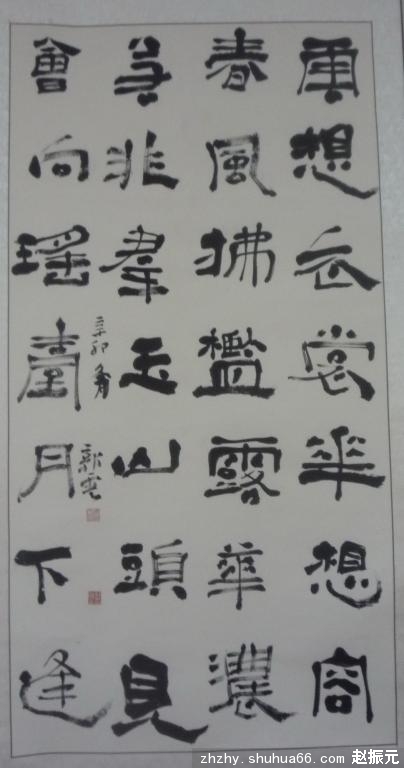 雲想衣裳華想容
春風拂檻露華濃
若非羣玉山頭見
會向瑤臺月下逢
辛卯
zhzhy.shuhua66.com 赵振元